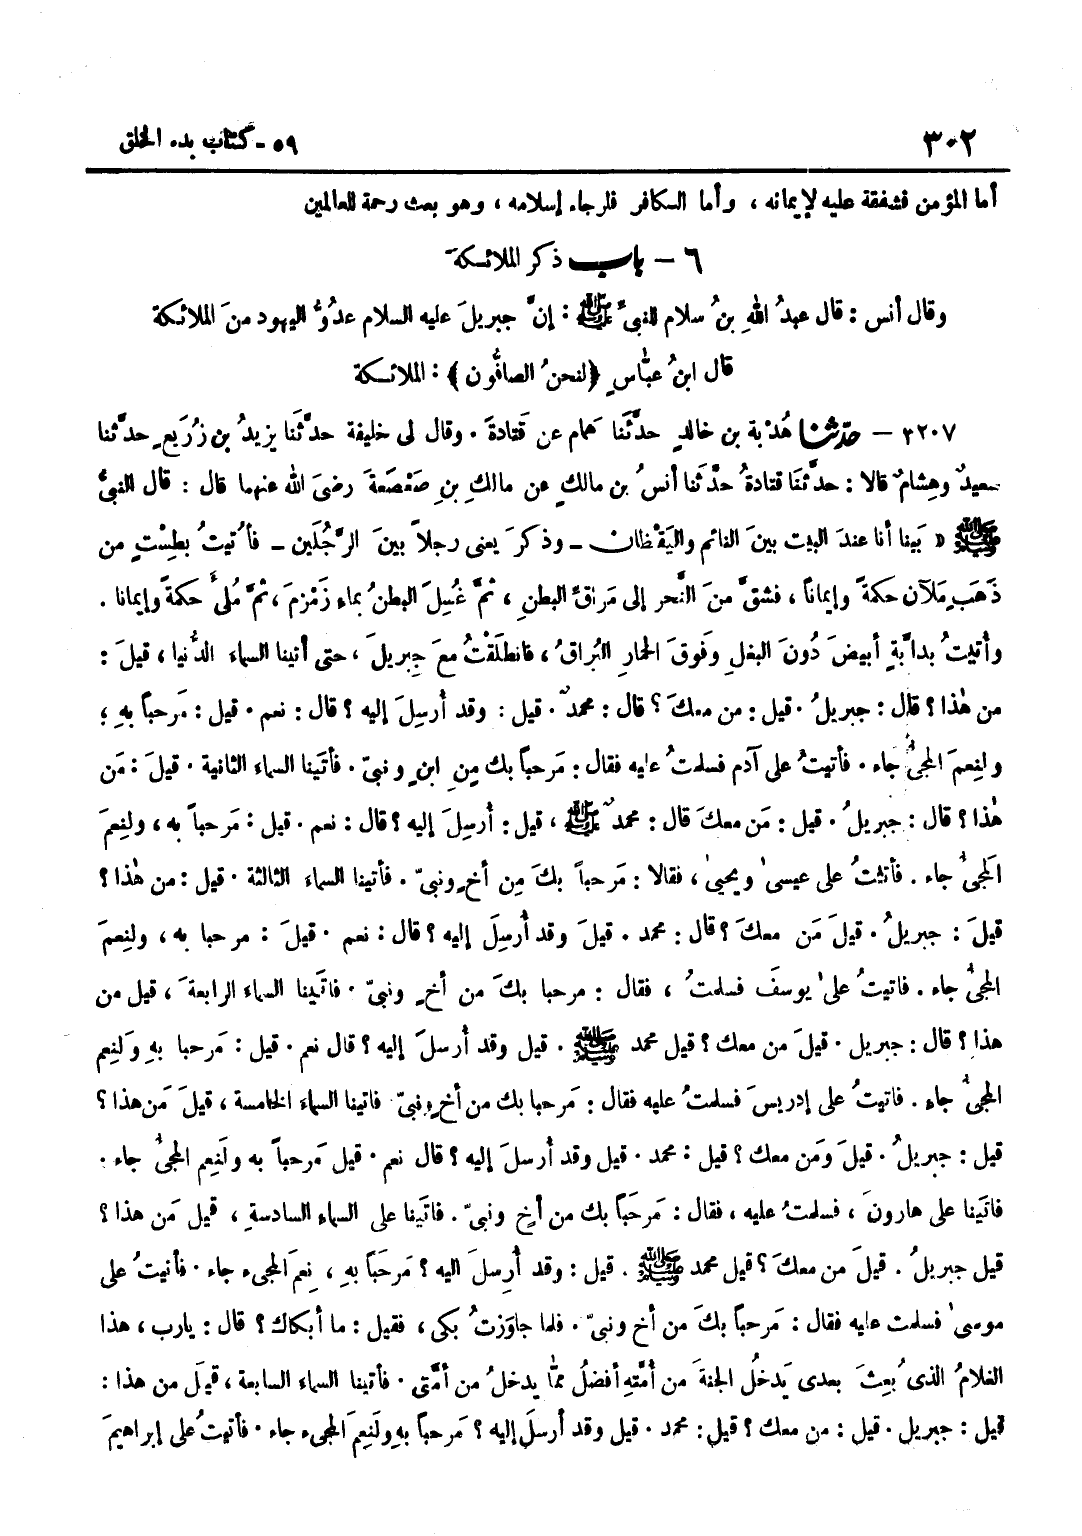 ٣٠٢
٥٩ - كتاب بدء الخلق
أما المؤمن فشفقة عليه لإيمانه ، وأما الكافر فلرجاء إسلامه ، وهو بعث رحمة للعالمين
٦ - باب ذكر الملائكةَ
وقال أنس : قال عبدُ اللهِ بنُ سلام للنبىِّ ﷺ : إنَّ جبريلَ عليه السلام عدُوُّ اليهود منَ الملائكة
قال ابنُ عبّاسٍ ﴿ لنحنُ الصافُّون ﴾ : الملائكة
٣٢٠٧ - حدثنا هُدْبة بن خالدٍ حدَّثَنا همام عن قَتادةَ . وقال لى خليفة حدَّثَنا يزيدُ بن زُرَيعٍ حدَّثنا
سعيدٌ وهشامٌ قالا : حدَّثنَا قتادةُ حدَّثَنا أنسُ بن مالكٍ عن مالكِ بنِ صَعْصَعةَ رضىَ الله عنهما قال : قال النبىُّ
ﷺ « بَينا أنا عندَ البيت بينَ النائم واليَقْظان - وذكرَ يعنى رجلاً بينَ الرَّجُلَين - فأُتيتُ بطِسْتٍ من
ذَهَبٍ مَلآن حكمةً وإيماناً ، فشقَّ منَ النَّحر إلى مَراقِّ البطنِ ، ثمَّ غُسِلَ البطنُ بماءِ زَمْزمَ ، ثمَّ مُلئَ حكمةً وإيمانا .
وأتيتُ بدابَّةٍ أبيضَ دُونَ البغلِ وفَوقَ الحمارِ البُراقُ ، فانطلَقْتُ معَ جِبريلَ ، حتى أتينا السماء الدُّنيا ، قيلَ :
من هٰذا ؟ قال : جبريلُ . قيل : من معكَ ؟ قال : محمدٌ . قيل : وقد أُرسِلَ إليه ؟ قال : نعم . قيل : مَرحباً بهِ ،
ولنِعمَ المجىُّ جاء . فأتيتُ على آدم فسلمتُ عليه فقال : مَرحباً بك مِن ابنٍ ونبىّ . فأتَينا السماء الثانية . قيلَ : مَن
هٰذا ؟ قال : جبريلُ . قيل : مَن معكَ قال : محمدٌ ﷺ ، قيل : أُرسِلَ إليه ؟ قال : نعم . قيل : مَرحباً به ، ولنِعمَ
المجىُ جاء . فأتيتُ على عيسىٰ ويحيىٰ ، فقالا : مَرحباً بكَ مِن أخٍ ونبىّ . فأتينا السماء الثالثة . قيل : من هٰذا ؟
قيلَ : جبريلُ . قيلَ مَن معكَ ؟ قال : محمد . قيلَ وقد أُرسِلَ إليه ؟ قال : نعم . قيلَ : مرحبا به ، ولنِعمَ
المجىُ جاء . فاتيتُ علىٰ يوسفَ فسلمتُ ، فقال : مرحبا بكَ من أخٍ ونبىّ . فاتَينا السماء الرابعةَ ، قيل من
هذا ؟ قال : جبريل . قيلَ من معك ؟ قيل محمد ﷺ . قيل وقد أُرسلَ إليه ؟ قال نعم . قيل : مَرحبا بهِ وَلنِعم
المجىُ جاء . فاتيتُ على إدريسَ فسلمتُ عليه فقال : مَرحبا بك من أخٍ ونبىّ فاتينا السماء الخامسة ، قيلَ مَن هذا ؟
قيل : جبريلُ . قيلَ ومَن معك ؟ قيل : محمد . قيل وقد أُرسلَ إليه ؟ قال نعم . قيل مَرحباً به ولَنِعم المجىُ جاء .
فاتَينا على هارونَ ، فسلمتُ عليه ، فقال : مَرحَباً بك من أخٍ ونبىّ . فاتَينا على السماءِ السادسةِ ، قيل مَن هذا ؟
قيل جبريلُ . قيلَ من معكَ ؟ قيل محمد ﷺ . قيل : وقد أُرِسلَ اليه ؟ مَرحَباً بهِ ، نِعمَ المجىء جاء . فأتيتُ على
موسىٰ فسلمت عليه فقال : مَرحباً بكَ من أخ ونبىّ . فلما جاوَزتُ بكى ، فقيل : ما أبكاك ؟ قال : يارب ، هذا
الغلامُ الذى بُعِثَ بعدى يَدخلُ الجنةَ من أُمَّتهِ أفضلُ ممّا يدخلُ من أمَّتى . فأتينا السماء السابعة ، قيلَ من هذا :
قيل : جبريل . قيل : من معك ؟ قيل : محمد . قيل وقد أُرسلَ إليه ؟ مَرحباً بهِ ولَنعِمَ المجىء جاء . فأتيتُ على إبراهيمَ